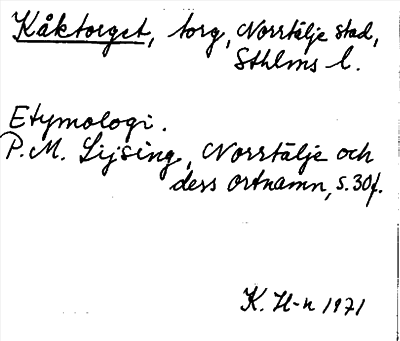 Kåktorget, torg, Norrtälje stad,
Sthlms l.
Etymologi.
P.M. Lijsing, Norrtälje och
dess ortnamn, s. 30f.
K. H-n 1971